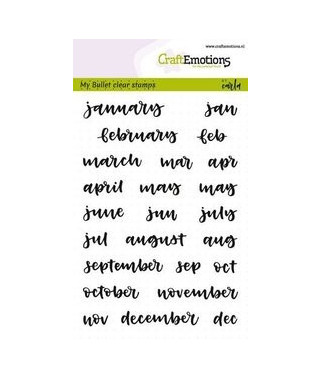 www.craftemotions.nl
CraftEmotions
My Bullet clear stamps
carla
january jan
february feb
march mar apr
april may may
june jun july
jul august aug
september sep oct
october november
nov december dec